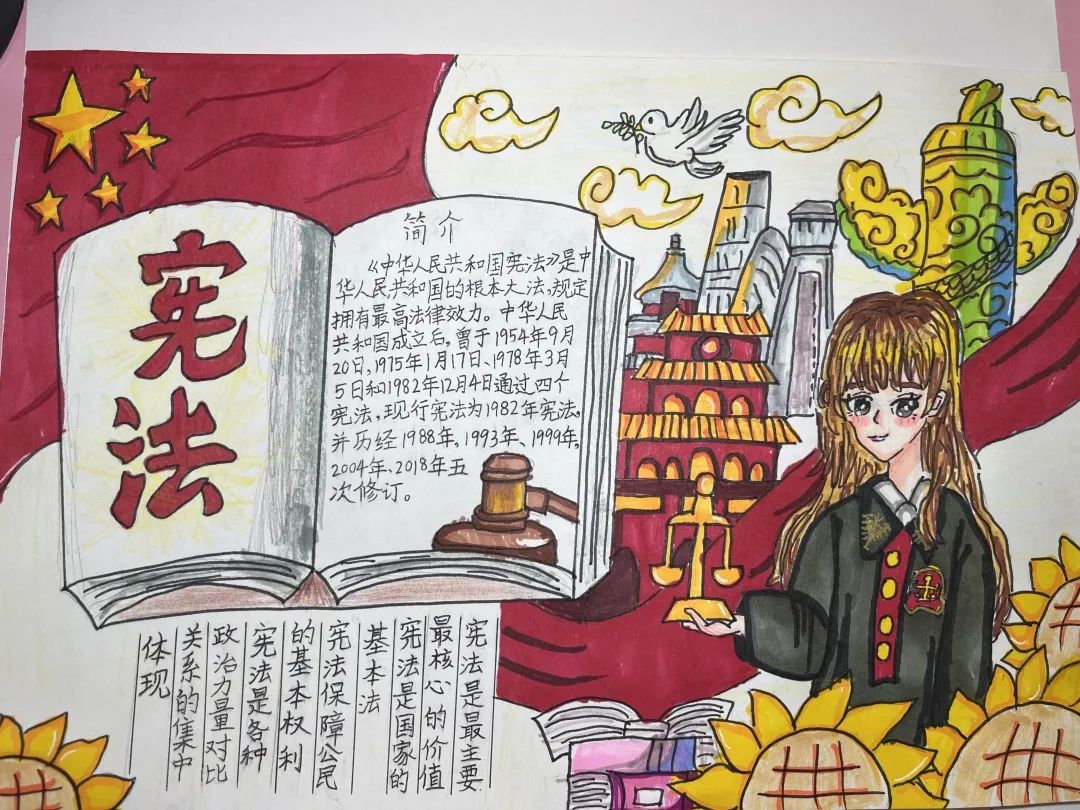 宪法
简介
《中华人民共和国宪法》是中
华人民共和国的根本大法,规定
拥有最高法律效力。中华人民
共和国成立后,曾于1954年9月
20日,1975年1月17日、1978年3月
5日和1982年12月4日通过四个
宪法,现行宪法为1982年宪法,
并历经1988年,1993年、1999年,
2004年、2018年五
次修订。
宪法是最主要
最核心的价值
宪法是国家的
基本法
宪法保障公民
的基本权利
宪法是各种
政治力量对比
关系的集中
体现